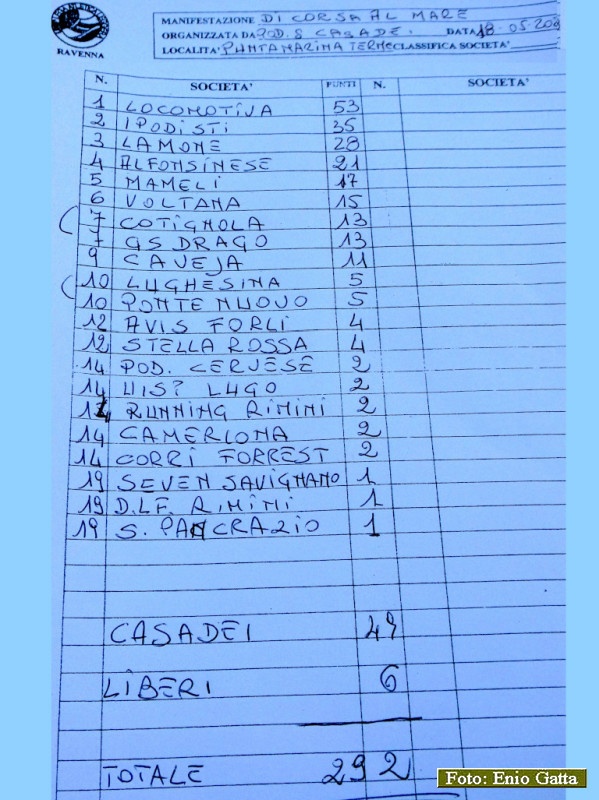 RAVENNA
MANIFESTAZIONE DI CORSA AL MARE
ORGANIZZATA DA POD. S CASADEI. DATA 18-05-20
LOCALITA' PUNTAMARINA TERME CLASSIFICA SOCIETA'
N. SOCIETA' PUNTI N. SOCIETA'
1 LOCOMOTIVA 53
2 IPODISTI 35
3 LAMONE 28
4 ALFONSINESE 21
5 MAMELI 17
6 VOLTANA 15
7 COTIGNOLA 13
7 GS DRAGO 13
9 CAVEJA 11
10 LUGHESINA 5
10 PONTE NUOVO 5
12 AVIS FORLI 4
12 STELLA ROSSA 4
14 POD. CERVESE 2
14 UISP LUGO 2
14 RUNNING RIMINI 2
14 CAMERLONA 2
14 CORRI FORREST 2
19 SEVEN SAVIGNANO 1
19 D.L.F. RIMINI 1
19 S. PANCRAZIO 1
CASADEI 49
LIBERI 6
TOTALE 292
Foto: Enio Gatta